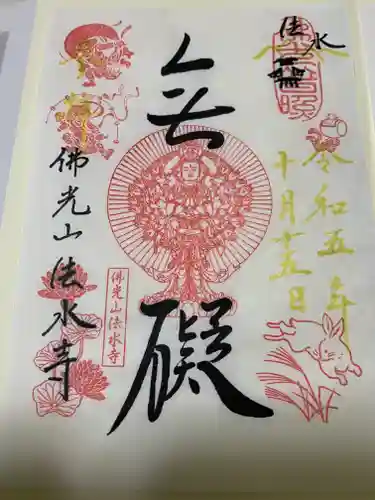 法水
令和五年
十月十五日
無礙
佛光山法水寺
佛光山法水寺